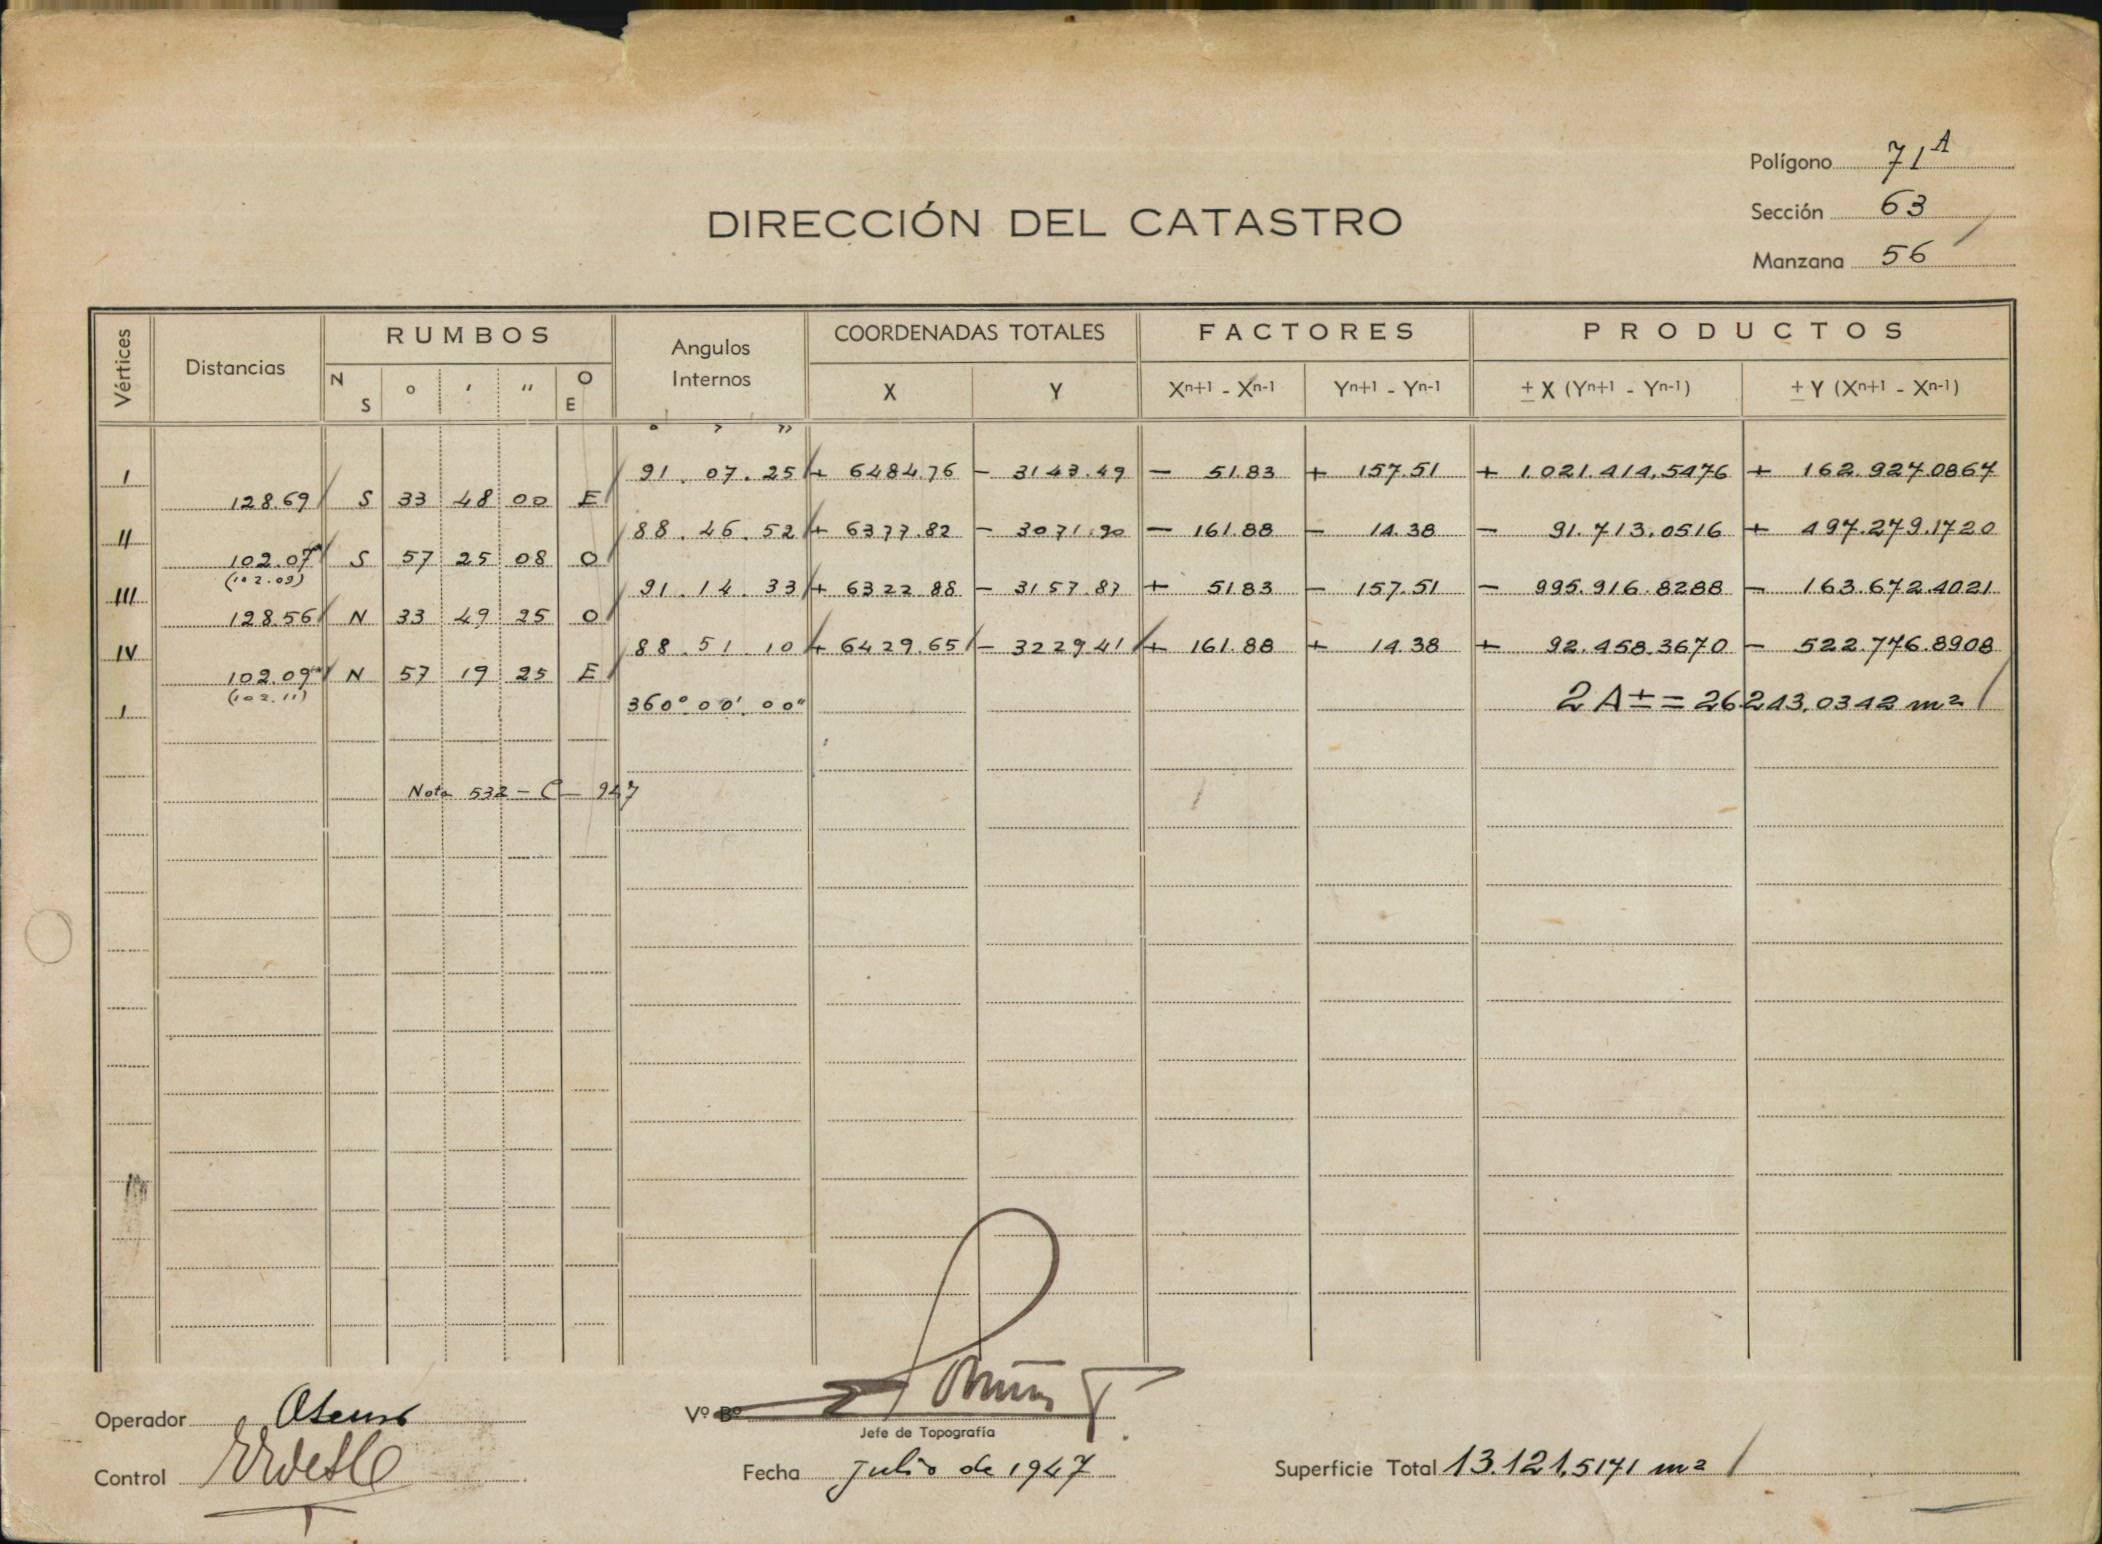 Polígono 71A
Sección 63
Manzana 56
DIRECCIÓN DEL CATASTRO
Vértices Distancias RUMBOS Angulos Internos COORDENADAS TOTALES FACTORES PRODUCTOS
N S ° ' " O E X Y Xn+1 - Xn-1 Yn+1 - Yn-1 ± X (Yn+1 - Yn-1) ± Y (Xn+1 - Xn-1)
° ' "
I 91. 07. 25 + 6484.76 - 3143.49 - 51.83 + 157.51 + 1.021.414,5476 + 162.927.0867
128.69 S 33 48 00 E
II 88. 46. 52 + 6377.82 - 3071.90 - 161.88 - 14.38 - 91.713.0516 + 497.279.1720
102.07 S 57 25 08 O
(102.09)
III 91. 14. 33 + 6322.88 - 3157.87 + 51.83 - 157.51 - 995.916.8288 - 163.672.4021
128.56 N 33 49 25 O
IV 88. 51. 10 + 6429.65 - 3229.41 + 161.88 + 14.38 + 92.458.3670 - 522.776.8908
102.09 N 57 19 25 E
(102.11)
I 360° 00'. 00" 2 A ± = 26243.0342 m²
Nota 532 - C - 947
Operador
Vº Bº
Jefe de Topografía
Control
Fecha Julio de 1947
Superficie Total 13.121,5171 m²